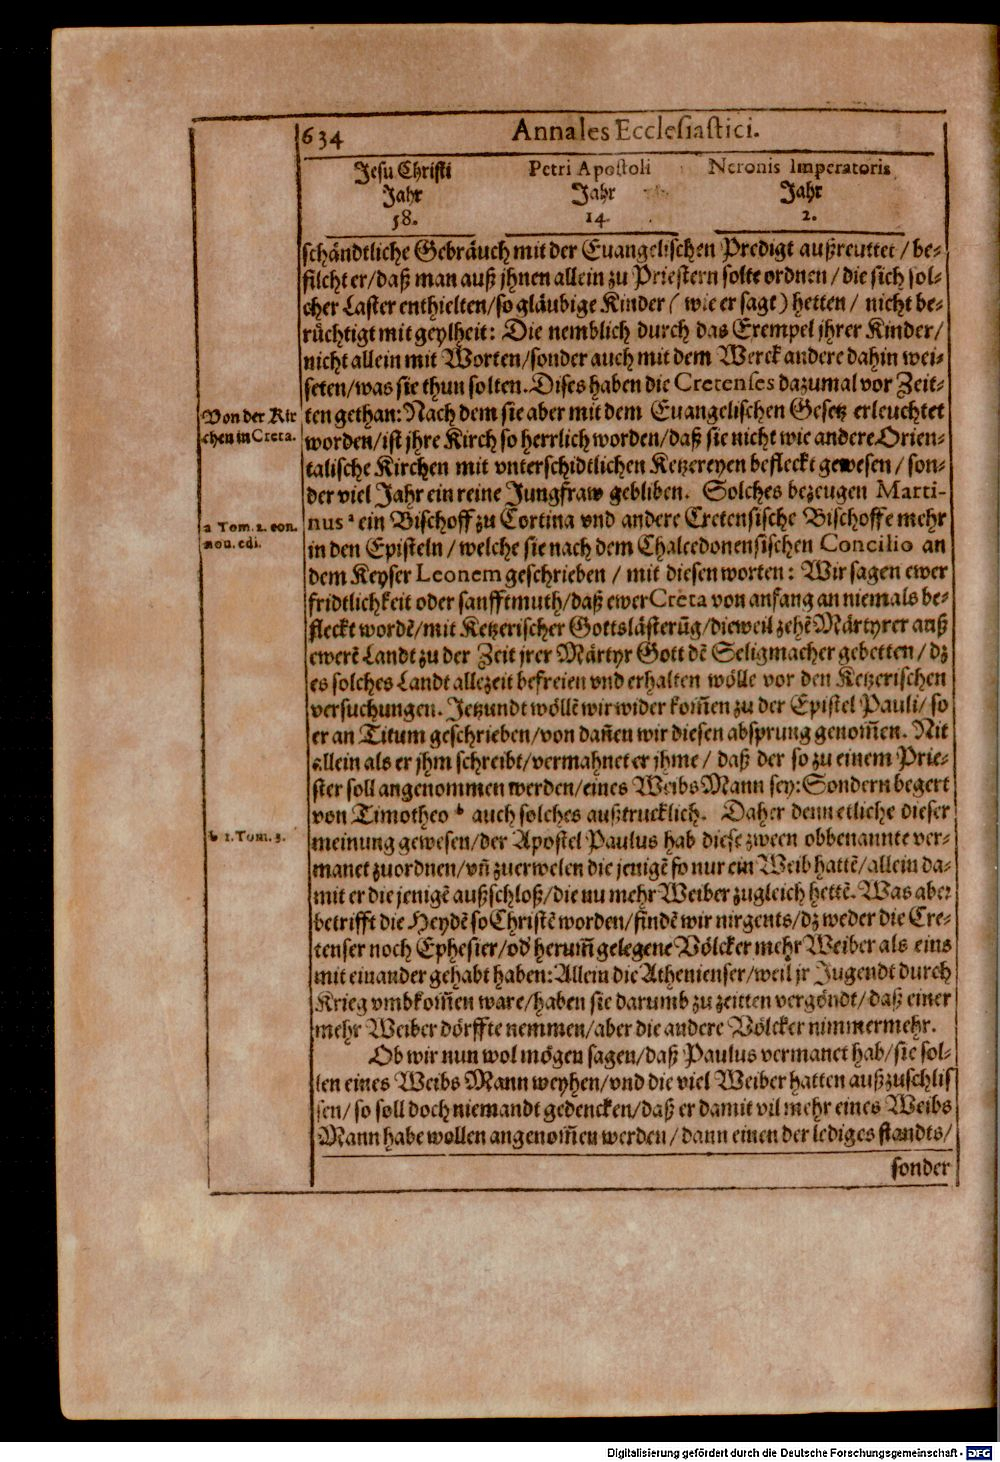 634
Annales Ecclesiastici.
Jesu Christi Petri Apostoli Neronis Imperatoris
Jahr Jahr Jahr
58. 14. 2.
schändtliche Gebräuch mit der Euangelischen Predigt außreuttet / be-
filcht er/daß man auß jhnen allein zu Priestern solte ordnen / die sich sol-
cher Laster enthielten/so gläubige Kinder ( wie er sagt) hetten / nicht be-
rüchtigt mit geylheit: Die nemblich durch das Exempel jhrer Kinder/
nicht allein mit Worten/sonder auch mit dem Werck andere dahin wei-
seten/was sie thun solten. Dises haben die Cretenses dazumal vor Zeit-
Von der Kir
chen in Creta.
ten gethan: Nach dem sie aber mit dem Euangelischen Gesetz erleuchtet
worden/ist jhre Kirch so herrlich worden/daß sie nicht wie andere Orien-
talische Kirchen mit vnterschidtlichen Ketzereyen befleckt gewesen / son-
der viel Jahr ein reine Jungfraw gebliben. Solches bezeugen Marti-
a Tom. 2. con.
nou. edi.
nus a ein Bischoff zu Cortina vnd andere Cretensische Bischoffe mehr
in den Episteln / welche sie nach dem Chalcedonensischen Concilio an
dem Keyser Leonem geschrieben / mit diesen worten: Wir sagen ewer
fridtlichkeit oder sanfftmuth/daß ewer Creta von anfang an niemals be-
fleckt wordē/mit Ketzerischer Gottslästerūg/dieweil zehē Märtyrer auß
ewerē Landt zu der Zeit jrer Märtyr Gott dē Seligmacher gebetten / dz
es solches Landt allezeit befreien vnd erhalten wölle vor den Ketzerischen
versuchungen. Jetzundt wöllē wir wider kom̄en zu der Epistel Pauli/ so
er an Titum geschrieben/von dan̄en wir diesen absprung genom̄en. Nit
allein als er jhm schreibt/vermahnet er jhme / daß der so zu einem Prie-
ster soll angenommen werden/eines Weibs Mann sey: Sondern begert
b 1. Tom. 3.
von Timotheo b auch solches außtrucklich. Daher denn etliche dieser
meinung gewesen/der Apostel Paulus hab diese zween obbenannte ver-
manet zuordnen/vn̄ zuerwelen die jenigē so nur ein Weib hattē/allein da-
mit er die jenigē außschloß/die nu mehr Weiber zugleich hettē. Was aber
betrifft die Heydē so Christē worden/findē wir nirgents/dz weder die Cre-
tenser noch Ephesier/od' herum̄ gelegene Völcker mehr Weiber als eins
mit einander gehabt haben: Allein die Athenienser/weil jr Jugendt durch
Krieg vmbkom̄en ware/haben sie darumb zu zeitten vergöndt/daß einer
mehr Weiber dörffte nemmen/aber die andere Völcker nimmermehr.
Ob wir nun wol mögen sagen/daß Paulus vermanet hab/sie sol-
len eines Weibs Mann weyhen/vnd die viel Weiber hatten außzuschlis
sen/so soll doch niemandt gedencken/daß er damit vil mehr eines Weibs
Mann habe wollen angenom̄en werden/dann einen der lediges standts/
sonder
Digitalisierung gefördert durch die Deutsche Forschungsgemeinschaft - DFG